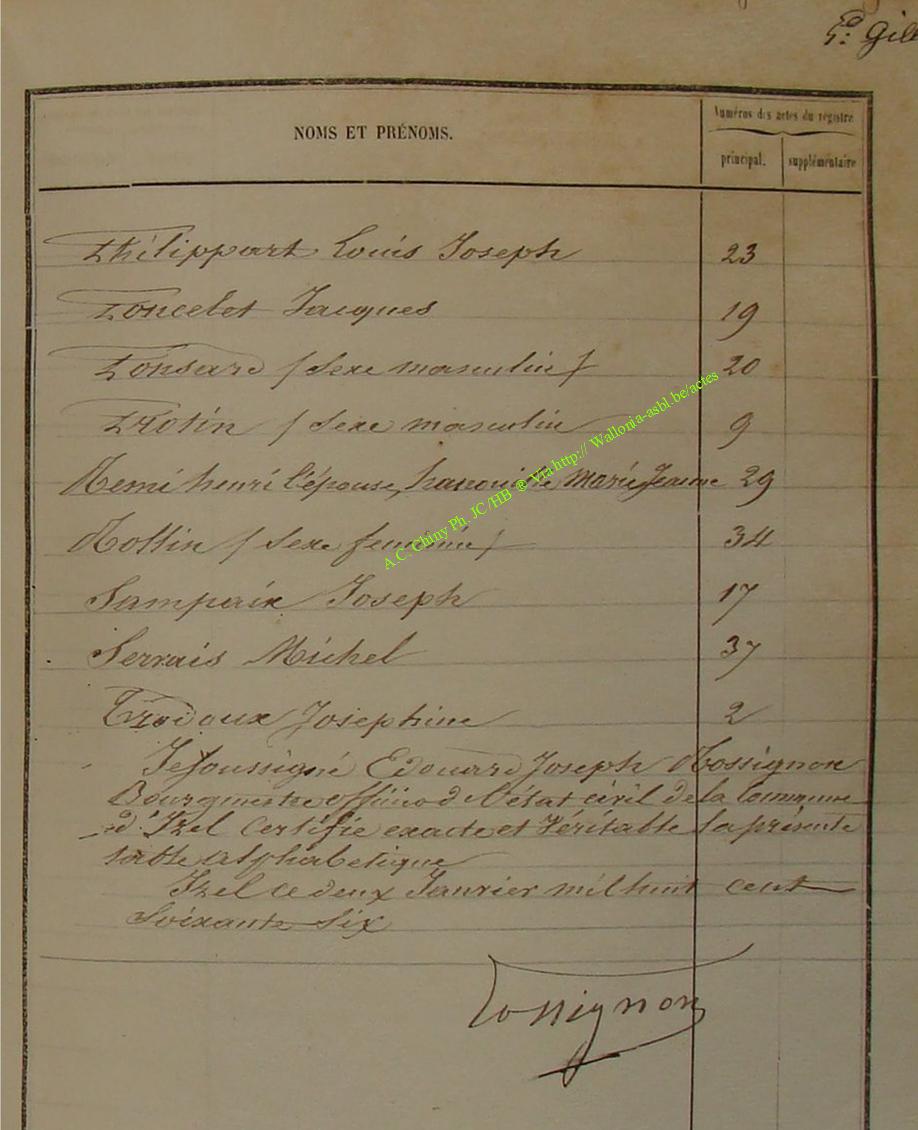 Gill
NOMS ET PRÉNOMS.
Numéros des actes du régistre
principal. supplémentaire
Philippart Louis Joseph 23
Poncelet Jacques 19
Ponsard / Sexe masculin / 20
Protin / Sexe masculin 9
Remi henri l'épouse, Marie Jeanne 29
Rossin / Sexe feminin / 34
Sampaix Joseph 17
Servais Michel 37
Trodoux Josephine 2
Je Soussigné Edouard Joseph Rossignon
Bourgmestre officier d l'état civil de la Commune
d'Izel Certifie exacte et Véritable la présente
table alphabetique
Izel ce deux Janvier mil huit cent
Soixante Six
Rossignon
A.C. Chiny Ph. JC /HB ® Via http:// Wallonia-asbl.be/actes